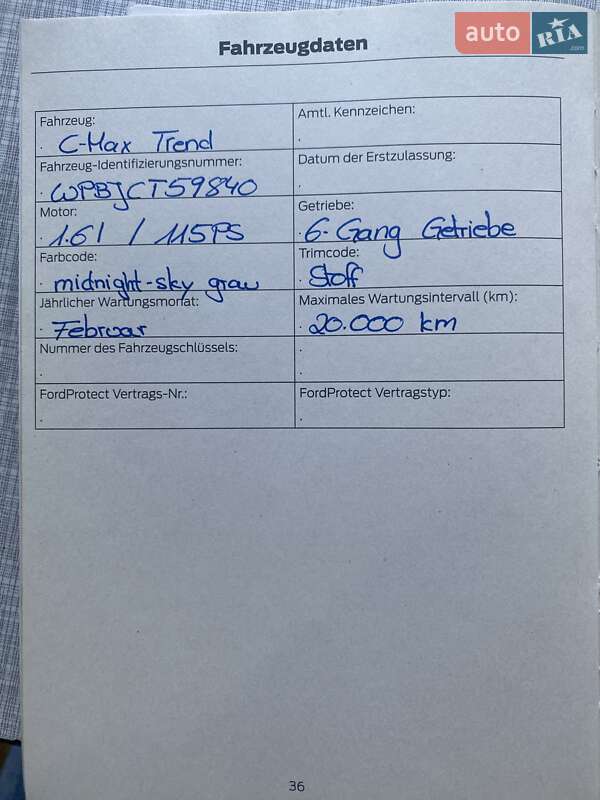 auto RIA .com
Fahrzeugdaten
Fahrzeug:
C-Max Trend
Amtl. Kennzeichen:
Fahrzeug-Identifizierungsnummer:
WPBJCT59840
Datum der Erstzulassung:
Motor:
1.6l / 115PS
Getriebe:
6-Gang Getriebe
Farbcode:
midnight-sky grau
Trimcode:
Stoff
Jährlicher Wartungsmonat:
Februar
Maximales Wartungsintervall (km):
20.000 km
Nummer des Fahrzeugschlüssels:
FordProtect Vertrags-Nr.:
FordProtect Vertragstyp:
36